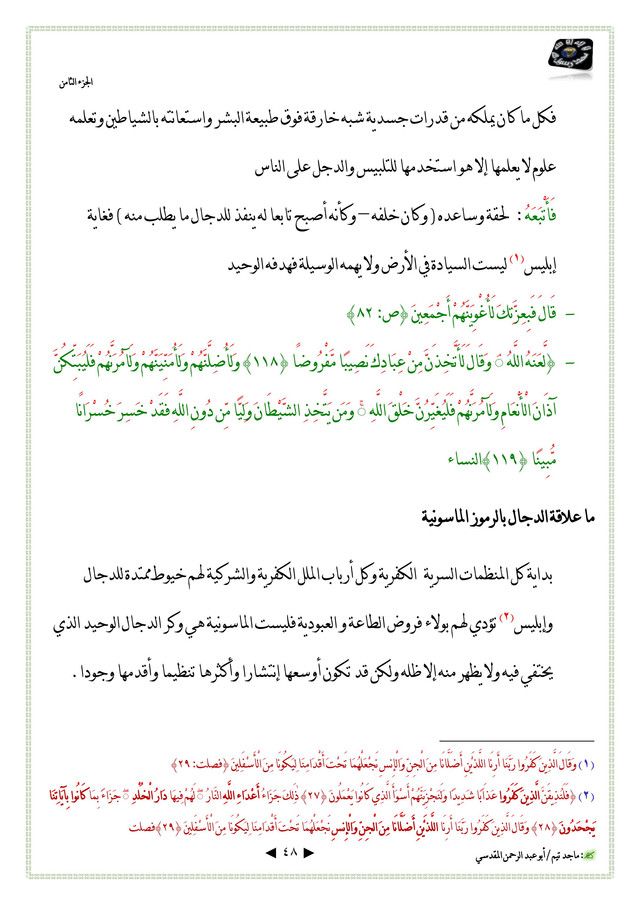 الجزء الثامن
فكل ما كان يملكه من قدرات جسدية شبه خارقة فوق طبيعة البشر واستعانته بالشياطين وتعلمه
علوم لا يعلمها إلا هو استخدمها للتلبيس والدجل على الناس
فَأَتْبَعَهُ : لحقة وساعده ( وكان خلفه – وكأنه أصبح تابعا له ينفذ للدجال ما يطلب منه ) فغاية
إبليس(١) ليست السيادة في الأرض ولا يهمه الوسيلة فهدفه الوحيد
- قَالَ فَبِعِزَّتِكَ لَأُغْوِيَنَّهُمْ أَجْمَعِينَ ﴿ص: ٨٢﴾
- ﴿لَّعَنَهُ اللَّهُ ۘ وَقَالَ لَأَتَّخِذَنَّ مِنْ عِبَادِكَ نَصِيبًا مَّفْرُوضًا ﴿١١٨﴾ وَلَأُضِلَّنَّهُمْ وَلَأُمَنِّيَنَّهُمْ وَلَآمُرَنَّهُمْ فَلَيُبَتِّكُنَّ
آذَانَ الْأَنْعَامِ وَلَآمُرَنَّهُمْ فَلَيُغَيِّرُنَّ خَلْقَ اللَّهِ ۚ وَمَن يَتَّخِذِ الشَّيْطَانَ وَلِيًّا مِّن دُونِ اللَّهِ فَقَدْ خَسِرَ خُسْرَانًا
مُّبِينًا ﴿١١٩﴾النساء
ما علاقة الدجال بالرموز الماسونية
بداية كل المنظمات السرية الكفرية وكل أرباب الملل الكفرية والشركية لهم خيوط ممتدة للدجال
وإبليس(٢) تؤدي لهم بولاء فروض الطاعة و العبودية فليست الماسونية هي وكر الدجال الوحيد الذي
يختفي فيه ولا يظهر منه إلا ظله ولكن قد تكون أوسعها إنتشارا وأكثرها تنظيما وأقدمها وجودا .
(١) وَقَالَ الَّذِينَ كَفَرُوا رَبَّنَا أَرِنَا اللَّذَيْنِ أَضَلَّانَا مِنَ الْجِنِّ وَالْإِنسِ نَجْعَلْهُمَا تَحْتَ أَقْدَامِنَا لِيَكُونَا مِنَ الْأَسْفَلِينَ ﴿فصلت: ٢٩﴾
(٢) ﴿فَلَنُذِيقَنَّ الَّذِينَ كَفَرُوا عَذَابًا شَدِيدًا وَلَنَجْزِيَنَّهُمْ أَسْوَأَ الَّذِي كَانُوا يَعْمَلُونَ ﴿٢٧﴾ ذَٰلِكَ جَزَاءُ أَعْدَاءِ اللَّهِ النَّارُ ۖ لَهُمْ فِيهَا دَارُ الْخُلْدِ ۖ جَزَاءً بِمَا كَانُوا بِآيَاتِنَا
يَجْحَدُونَ ﴿٢٨﴾ وَقَالَ الَّذِينَ كَفَرُوا رَبَّنَا أَرِنَا اللَّذَيْنِ أَضَلَّانَا مِنَ الْجِنِّ وَالْإِنسِ نَجْعَلْهُمَا تَحْتَ أَقْدَامِنَا لِيَكُونَا مِنَ الْأَسْفَلِينَ ﴿٢٩﴾فصلت
: ماجد تيم / أبو عبد الرحمن المقدسي
٤٨